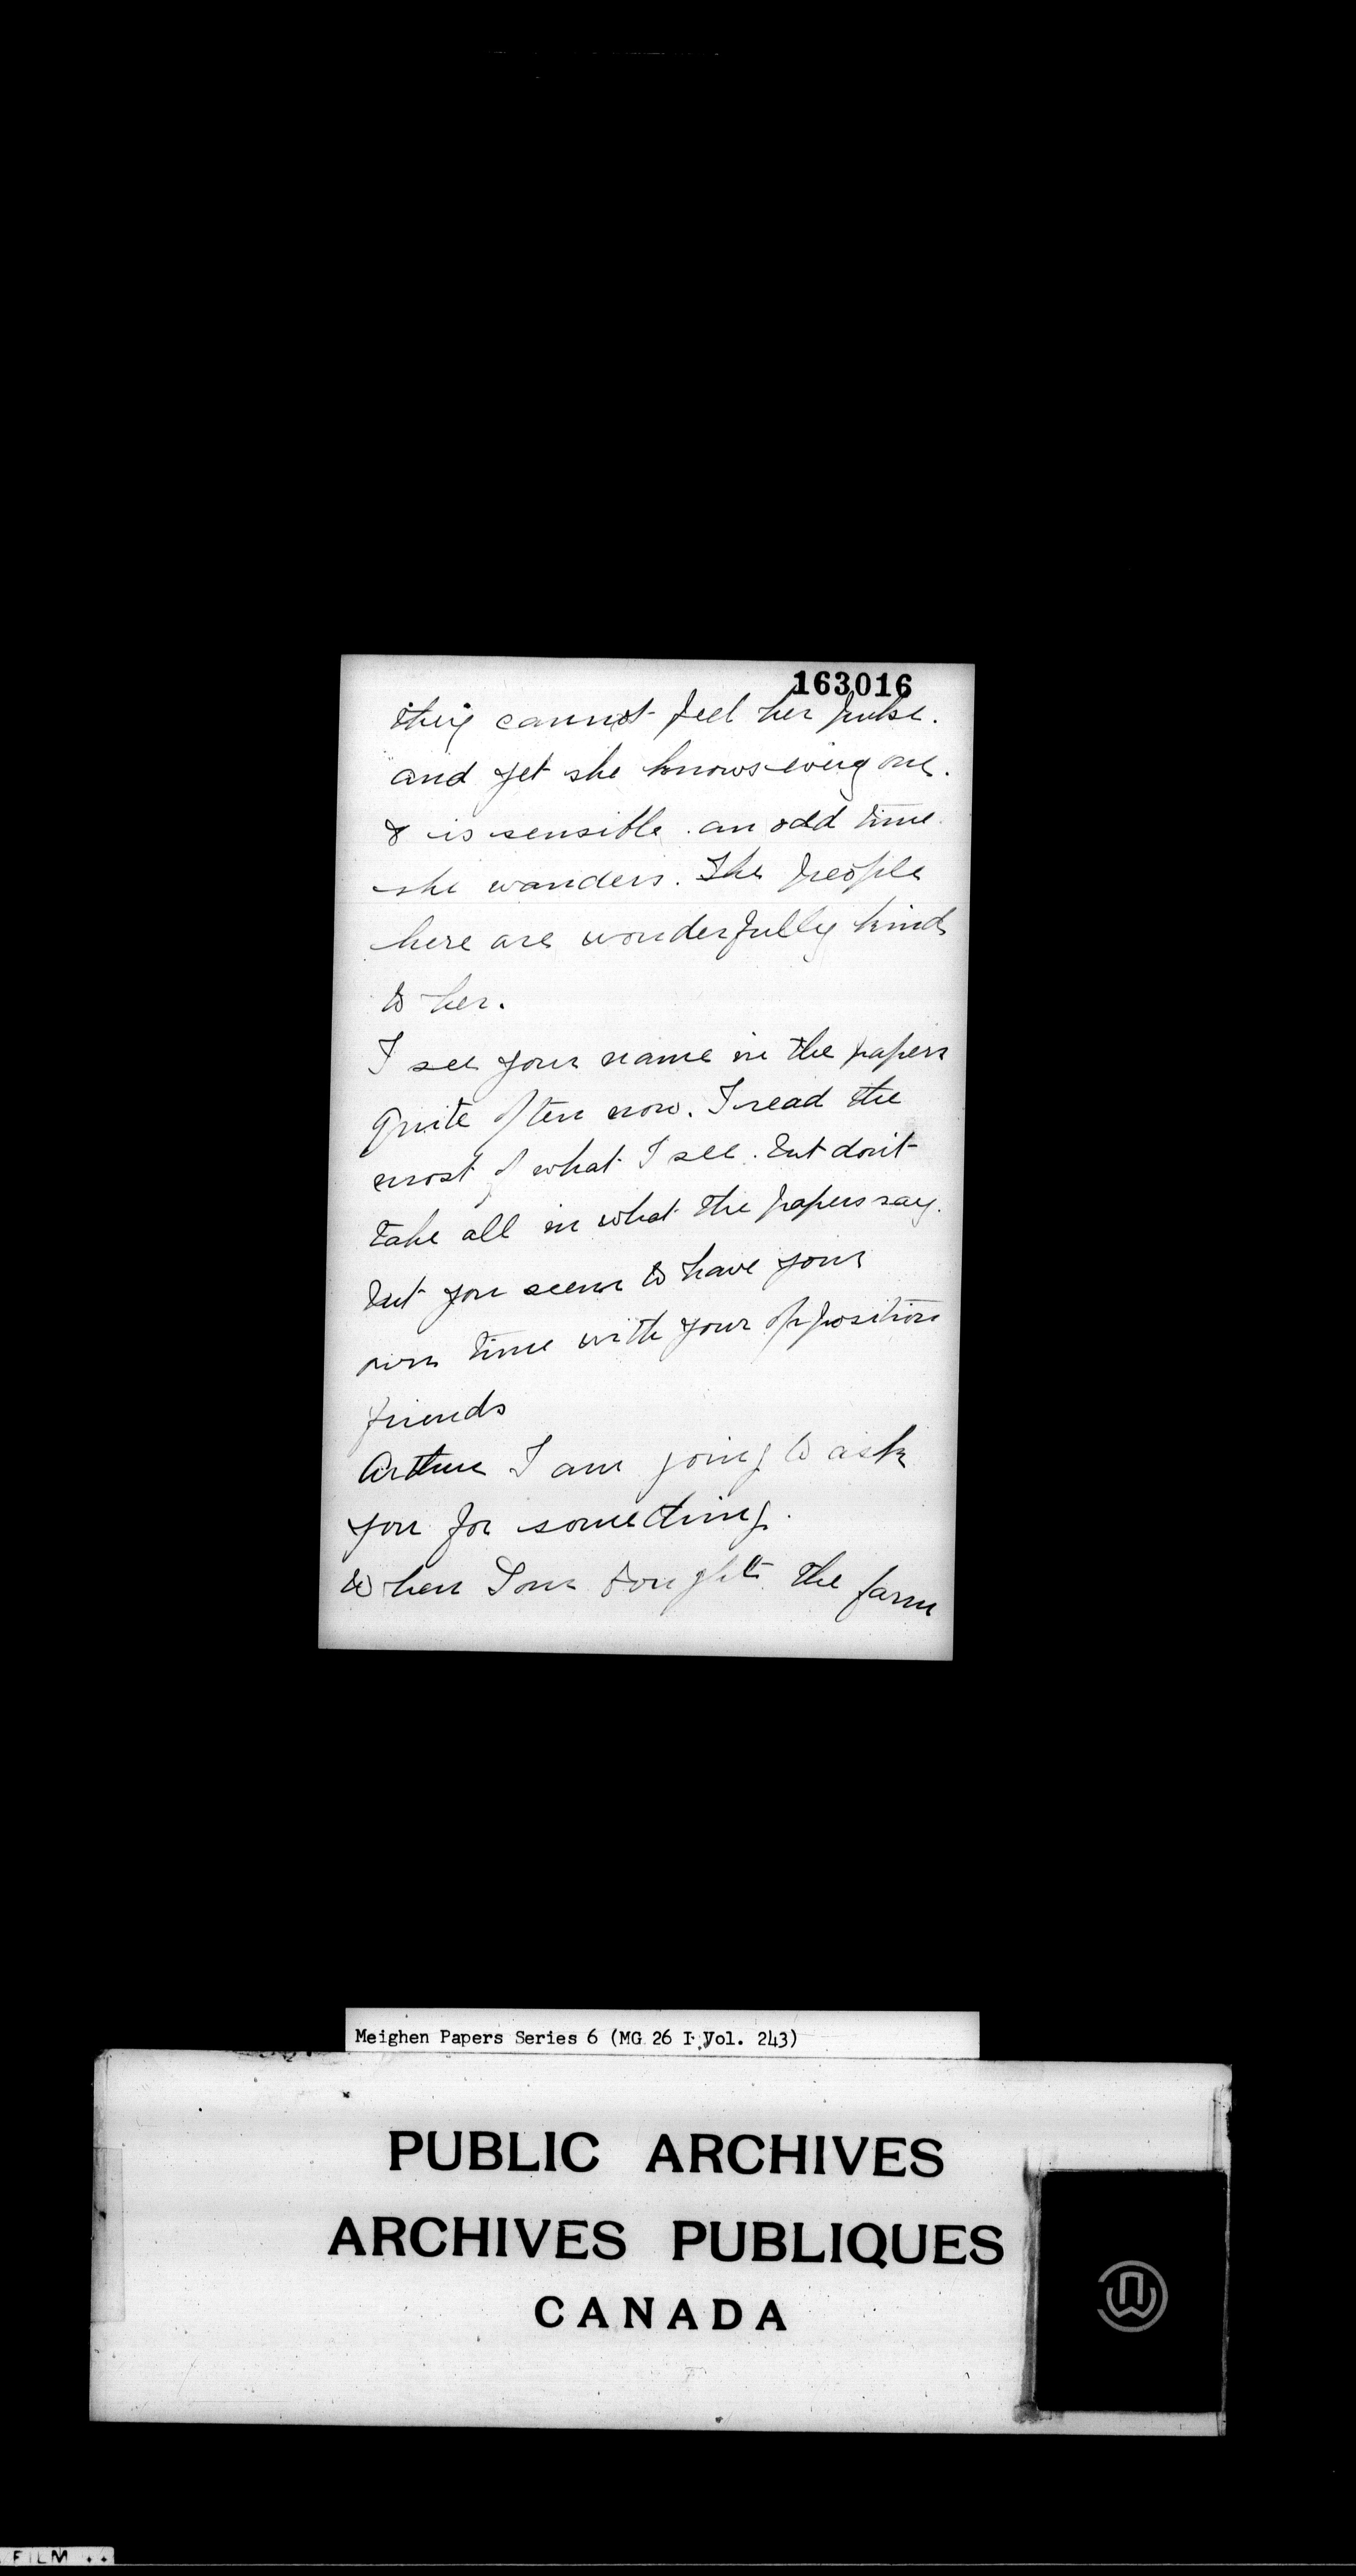 163016
they cannot feel her pulse.
and yet she knows every one.
& is sensible. an odd time
she wanders. The people
here are wonderfully kind
to her.
I see your name in the papers
quite often now. I read the
most of what I see. but don't
take all in what the papers say.
but you seem to have your
own time with your opposition
friends
Arthur I am going to ask
you for something.
When Tom bought the farm
Meighen Papers Series 6 (MG 26 I Vol. 243)
PUBLIC ARCHIVES
ARCHIVES PUBLIQUES
CANADA
FILM